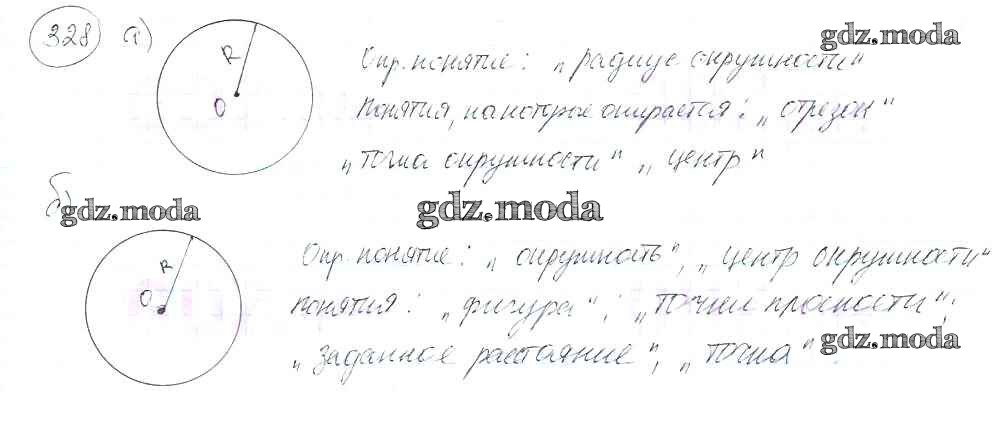 328 а)
gdz.moda
R
O
Опр. понятие: „радиус окружности“
понятия, на которое опирается: „отрезок“
„точка окружности“ „центр“
б)
gdz.moda
gdz.moda
R
O
Опр. понятие: „окружность“, „центр окружности“
понятия: „фигура“; „точки плоскости“;
gdz.moda
„заданное расстояние“, „точка“